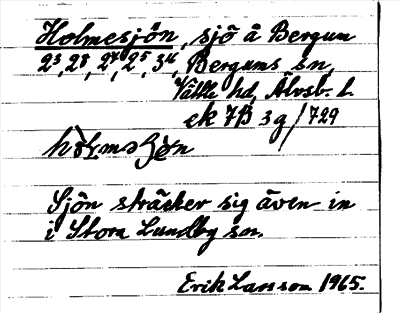 Holmesjön, sjö å Bergum
2³, 2⁸, 2⁷, 2⁵, 3⁴, Bergums sn,
Vättle hd, Älvsb. l.
ek 7B 3g/729
hòlməʃø̀n
Sjön sträcker sig även in
i Stora Lundby sn.
Erik Larsson 1965.